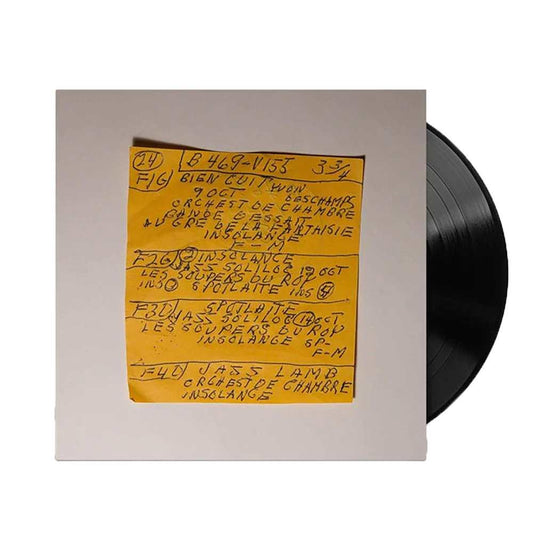 24 B 469-V155 3 3/4
F1G BIEN CUIT YVON
9 OCT DESCHAMPS
ORCHEST DE CHAMBRE
BANDE D ESSAIT
AU GRE DE LA FANTAISIE
INSOLANGE
F-M
F2G INSOLANCE
JASS SOLILOG 19 OCT
LES SOUPERS DU ROY
INS SPOTLAITE INS
F3D SPOTLAITE
JASS SOLILOG 19 OCT
LES SOUPERS DU ROY
INSOLANGE SP-
F-M
F4D JASS LAMB
ORCHEST DE CHAMBRE
INSOLANGE